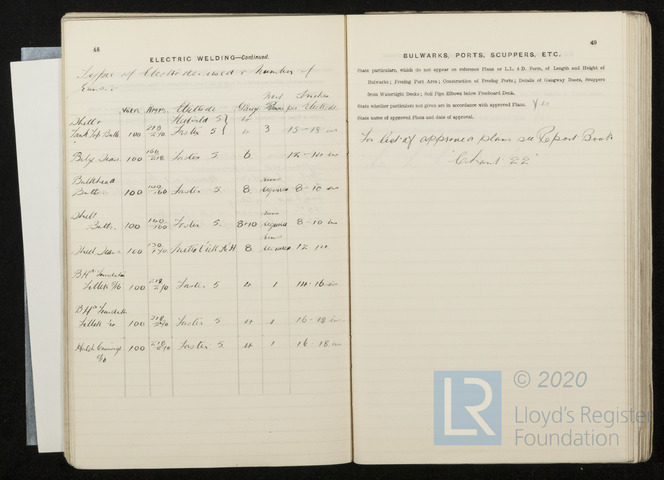 48
ELECTRIC WELDING—Continued.
Types of Electrodes used & number of
Runs
Volts Amps Electrode Gauge Runs per Electrode
Shell &
Tank Top Butts 100 Foster 5 4 3 15-18 ins
Bilge Seams 100 Foster 5 6 12-14 ins
Bulkhead
Butts 100 Foster 5 8 as required 8-10 ins
Shell
Butts 100 Foster 5 8-10 as required 8-10 ins
Shell Seams 100 8 as required 12 ins
Fillets 100 Foster 5 4 1 14-16 ins
Fillets 100 Foster 5 4 1 16-18 ins
Hatch Coamings 100 Foster 5 4 1 16-18 ins
49
BULWARKS, PORTS, SCUPPERS, ETC.
State particulars, which do not appear on reference Plans or L.L. 4 D. Form, of Length and Height of
Bulwarks; Freeing Port Area; Construction of Freeing Ports; Details of Gangway Doors, Scuppers
from Watertight Decks; Soil Pipe Elbows below Freeboard Deck.
State whether particulars not given are in accordance with approved Plans. Yes
State name of approved Plans and date of approval.
For list of approved plans see Report Book
"Chant 22"
LR
© 2020
Lloyd's Register
Foundation